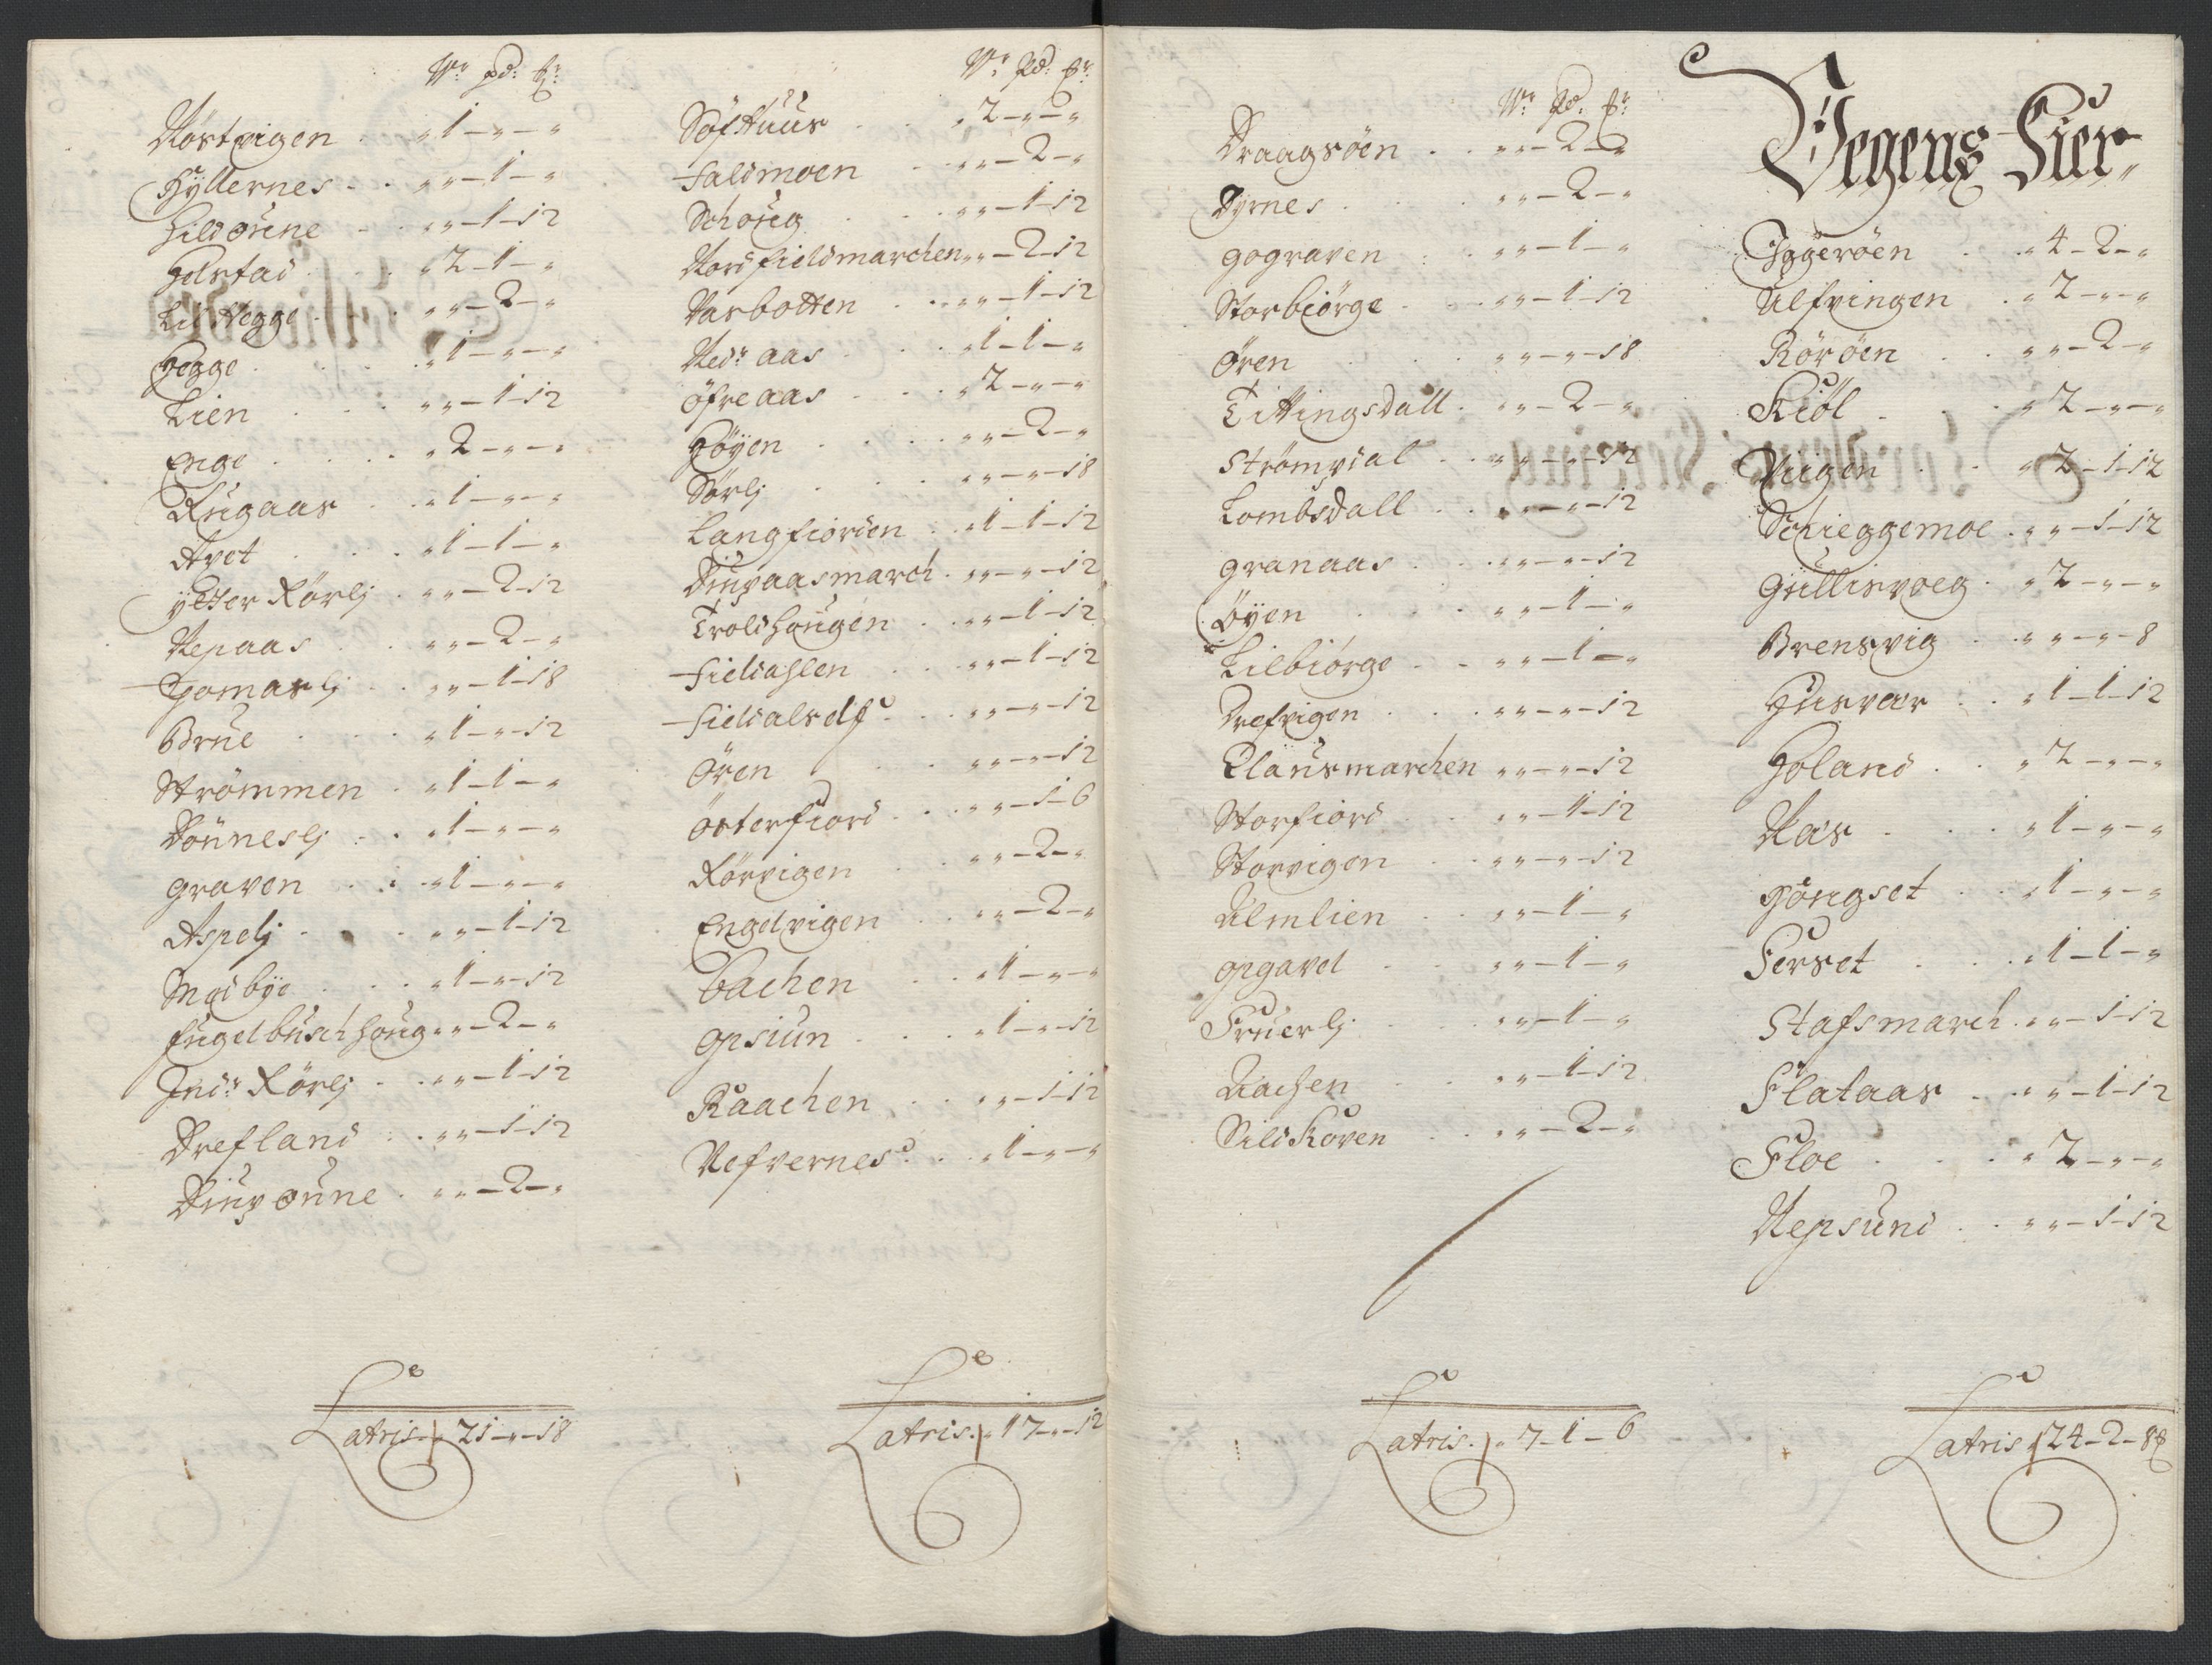 Wr pd: ℔r
Røstvigen . „ 1 – „ – „
Hyllernes . . „ „ – 1 – „
Hildoune . . „ „ – 1 – 12
Holstad . . . „ 2 – 1 – „
Lil Hegge . . „ „ – 2 – „
Hegge . . . „ 1 – „ – „
Lien . . . „ „ – 1 – 12
Enge . . . „ 2 – „ – „
Rugaas . . „ 1 – „ – „
Avet . . . „ 1 – 1 – „
ytter Rørlj . „ „ – 2 – 12
Repaas . . „ „ – 2 – „
Gomarlj . . „ „ – 1 – 18
Brue . . . „ 1 – „ – 12
Strømmen . „ 1 – 1 – „
Dønneslj . . „ 1 – „ – „
graven . . „ 1 – „ – „
Aspelj . . „ „ – 1 – 12
Medbye . . „ 1 – „ – 12
fugelbusch houg „ „ – 2 – „
Indr Rørlj . . „ „ – 1 – 12
Drefland . . „ „ – 1 – 12
Diupoune . „ „ – 2 – „
Latris . „ 21 – „ – 18
Wr Pd: ℔r
Søfthuus . . „ 2 – „ – „
Faldmoen . „ „ – 2 – „
Schoug . . „ „ – 1 – 12
Nordfieldmarchen „ „ – 2 – 12
Narbotten . . „ „ – 1 – 12
Nedr aas . . „ 1 – 1 – „
øfre aas . . „ 2 – „ – „
Høyen . . . „ „ – 2 – „
Sørlj . . . „ „ – „ – 18
Langfiorden . „ 1 – 1 – 12
Diupaasmarch . „ „ – „ – 12
Troldhougen . . „ „ – 1 – 12
Fieldahlen . . „ „ – 1 – 12
Fieldals elf . . „ „ – „ – 12
Øren . . „ „ – „ – 12
Østerfiord . . „ „ – 1 – 6
Rørvigen . . „ „ – 2 – „
Engelvigen . . „ „ – 2 – „
bachen . . „ 1 – „ – „
Opsiun . . . „ 1 – „ – 12
Raachen . . „ „ – 1 – 12
Nefvernes . . „ 1 – „ – „
Latris . „ 17 – „ – 12
Wr Pd: ℔r
Draagsøen . . „ „ – 2 – „
Dyrnes . . . „ „ – 2 – „
gograven . . „ „ – 1 – „
Storbiørge . . „ „ – 1 – 12
Øren . . . „ „ – „ – 18
Tittingsdall . „ „ – 2 – „
Strømpdal . . „ „ – „ – 12
Lombsdall . . „ „ – „ – 12
granaas . . „ „ – „ – 12
Øyen . . . „ „ – 1 – „
Lilbiørge . . „ „ – 1 – „
Drefvigen . . . „ „ – „ – 12
Clausmarchen „ „ – „ – 12
Storfiord . . „ „ – 1 – 12
Storvigen . . „ „ – „ – 12
Almlien . . „ „ – 1 – „
opgavel . . „ „ – 1 – „
Fruerlj . . „ „ – 1 – „
Aachen . . „ „ – 1 – 12
Sildkoven . . „ „ – 2 – „
Latris . „ 7 – 1 – 6
Vegens Fier
Yggerøen . . „ 4 – 2 – „
Ulfvingen . „ 2 – „ – „
Rørøen . . „ „ – 2 – „
Kiøl . . . „ 2 – „ – „
Viigen . . „ 2 – 1 – 12
Schieggemoe . „ „ – 1 – 12
Gullisvoeg . „ 2 – „ – „
Brensvig . „ „ – „ – 8
Husvær . . „ 1 – 1 – 12
Holand . . „ 2 – „ – „
Naas . . . „ 1 – „ – „
Hongset . . „ 1 – „ – „
Ferset . . . „ 1 – 1 – „
Stafsmarch . „ „ – 1 – 12
Flataas . . „ „ – 1 – 12
Floe . . . „ 2 – „ – „
Repsund . . „ „ – 1 – 12
Latris „ 24 – 2 – 8 ℔